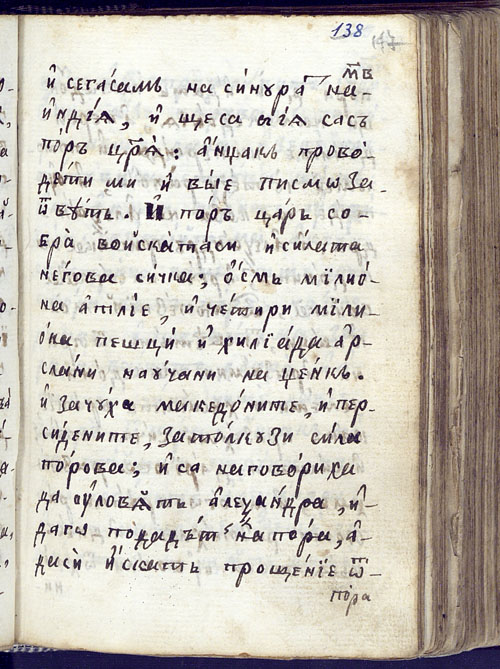 138
147
м҃в
и҆ сега́самь на си́нура̀ на-
и҆ндїѧ, и҆ щеса бїѧ сасъ
поръ ца҃рѧ: а҆нцакъ прово-
дети ми и҆ вы́е писмѡ за-
ѿвѹть. И҆ поръ царь со-
бра̀ воискатаси и҆ си́лата
негова си́чка; о҆́смь мїлио́-
на а҆тлїе, и҆ че́тири мїли-
о́на пещци и҆ хилїѧ́да а҆р-
сла́ни наѹчани на ценкь.
и҆ зачу́ха македо́ните, и҆ пер-
си́дените, за то́лкузи сила
по́рова; и҆ са наговори́ха
да ѹловѧ́ть а҆леѯа́ндра, и҆-
дагѡ подадъ́ть на по́ра, а҆-
даси и҆́скать проще́нїе ѿ-
по́ра